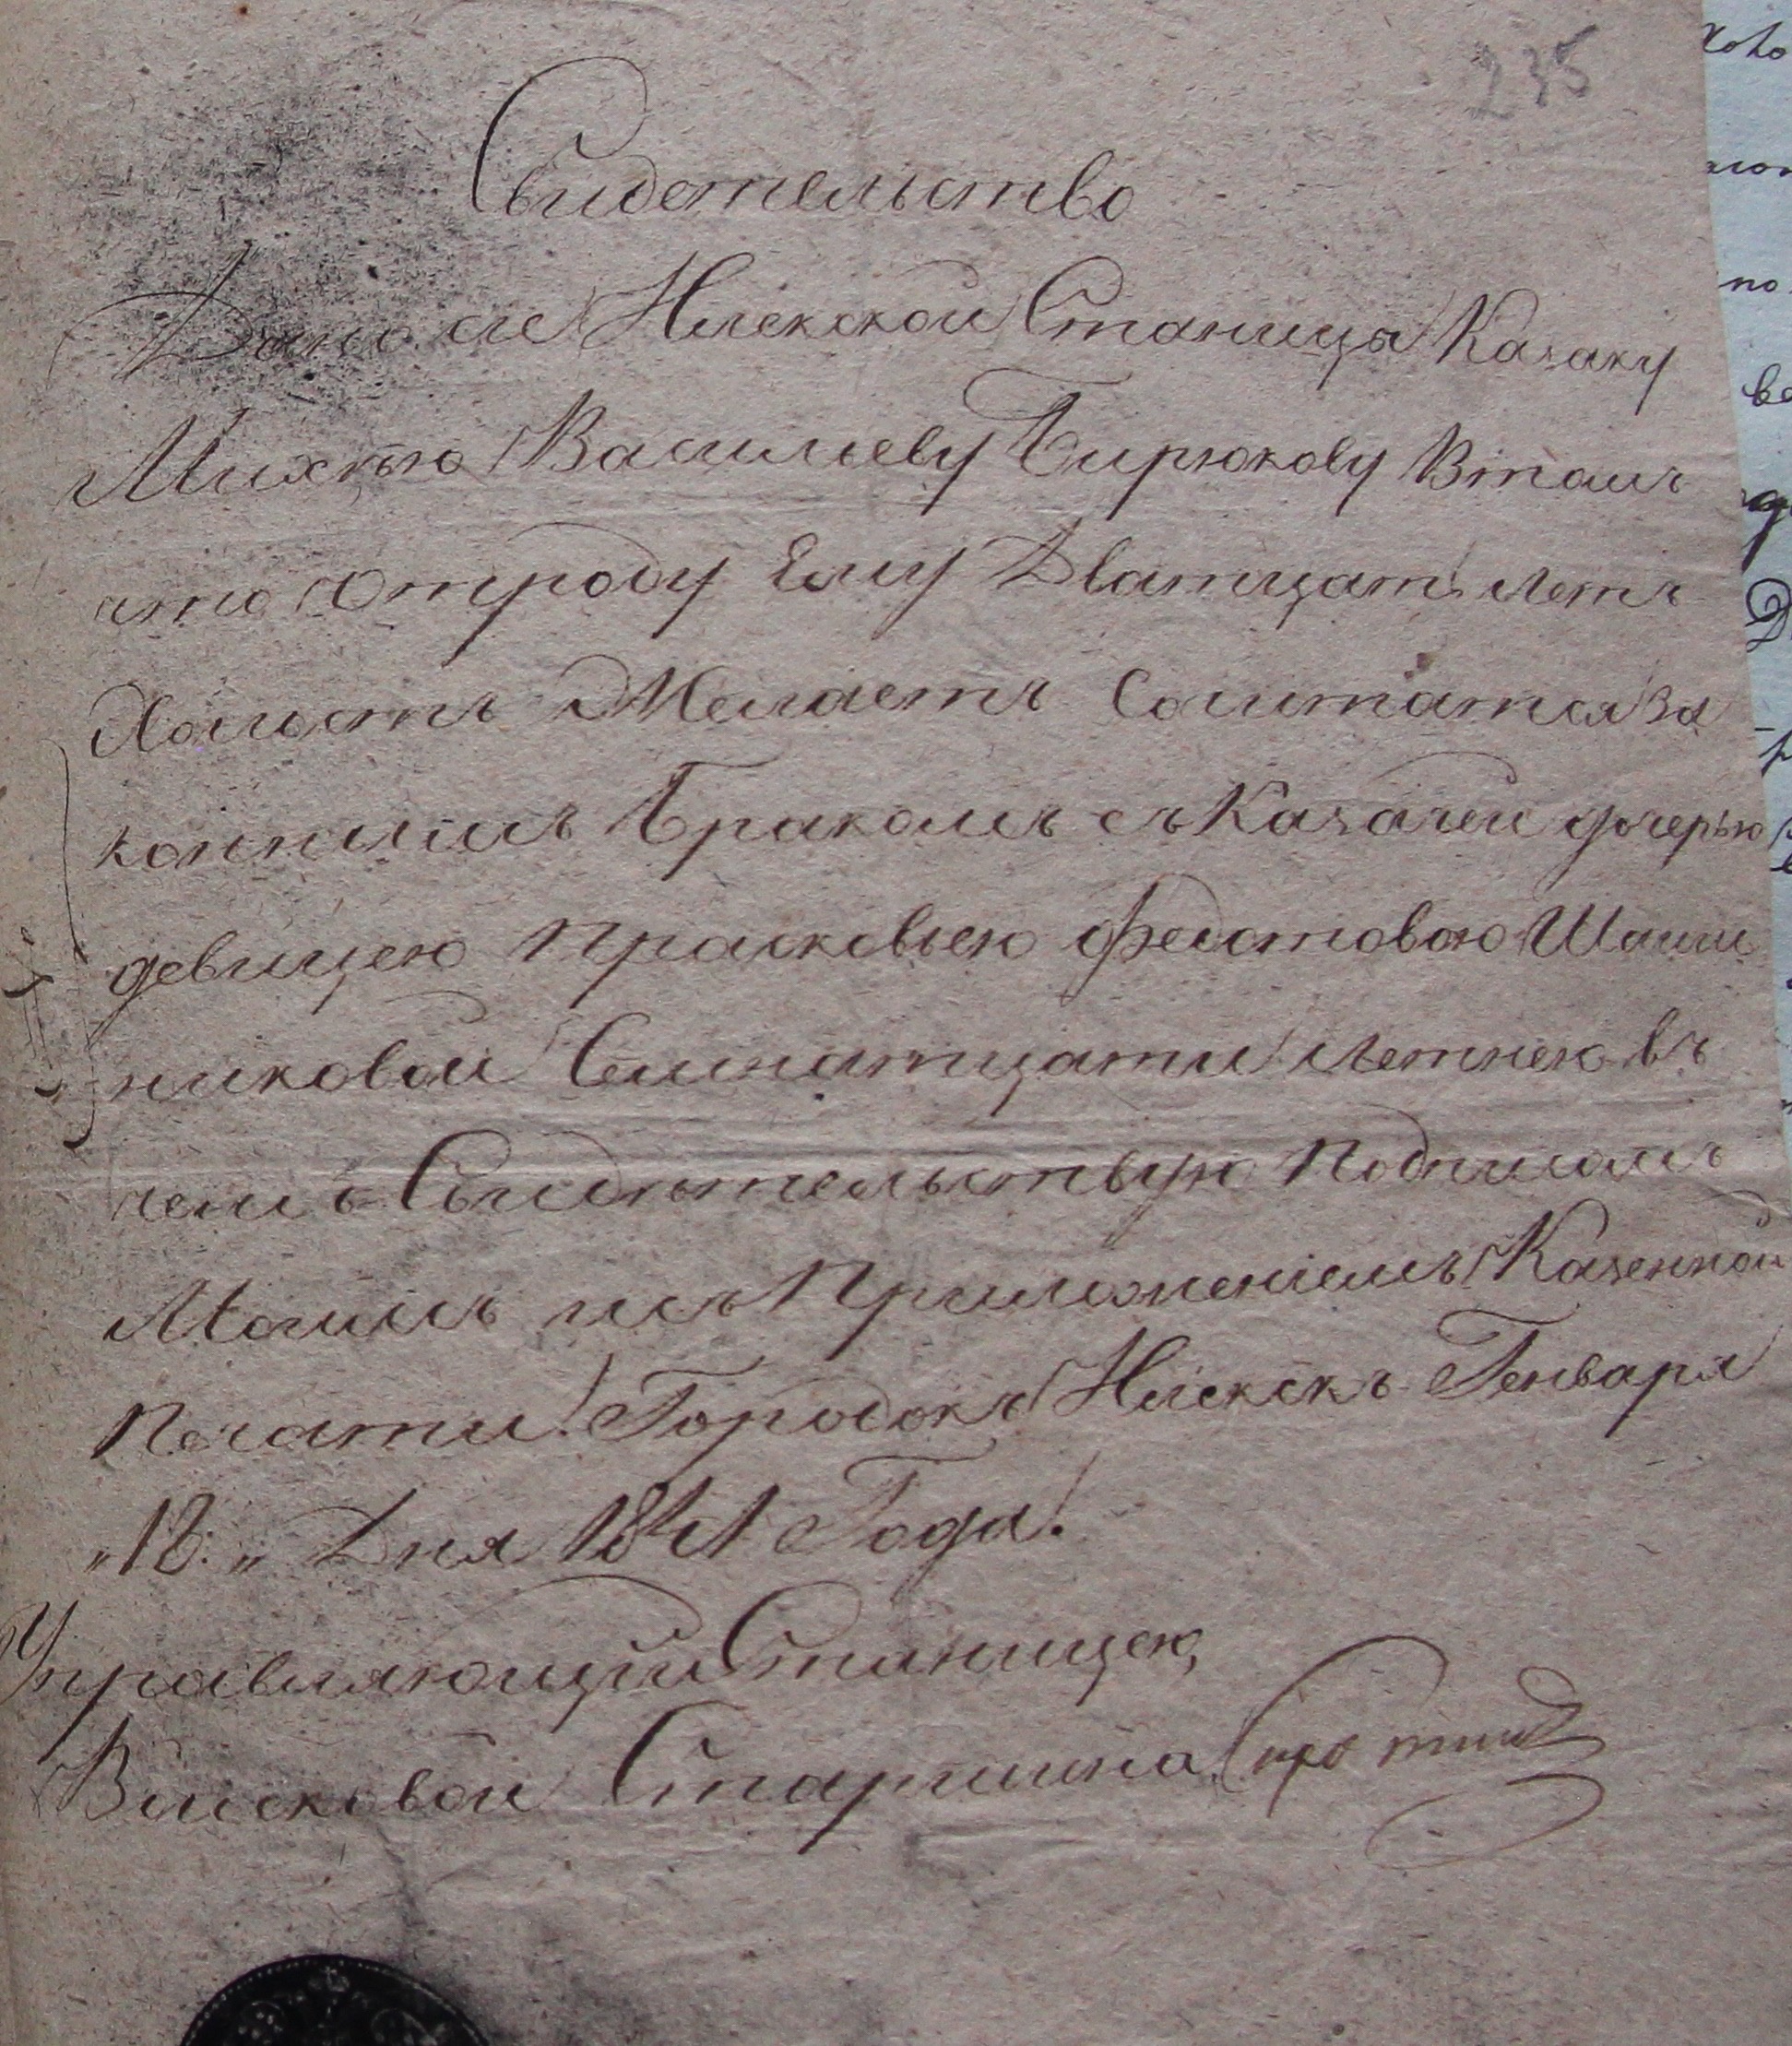 235
Свидетельство
Дано сие Илекской Станицы Казаку
Михѣю Василиеву Бирюкову Втом
что Отроду Ему Дватцать летъ
Холостъ Желаетъ Сочитатся за
коннымъ Бракомъ съ Казачей дочерью
девицею Прасковьею Федотовою Шапош
никовой Семнатцати летнею въ
чем ъ Свидѣтельствую Подписомъ
Моимъ исъ Приложениемъ Казенной
Печати. Городокъ Илекскъ Генваря
„18.„ Дня 1841 Года.
Управляющий Станицею,
Войсковой Старшина